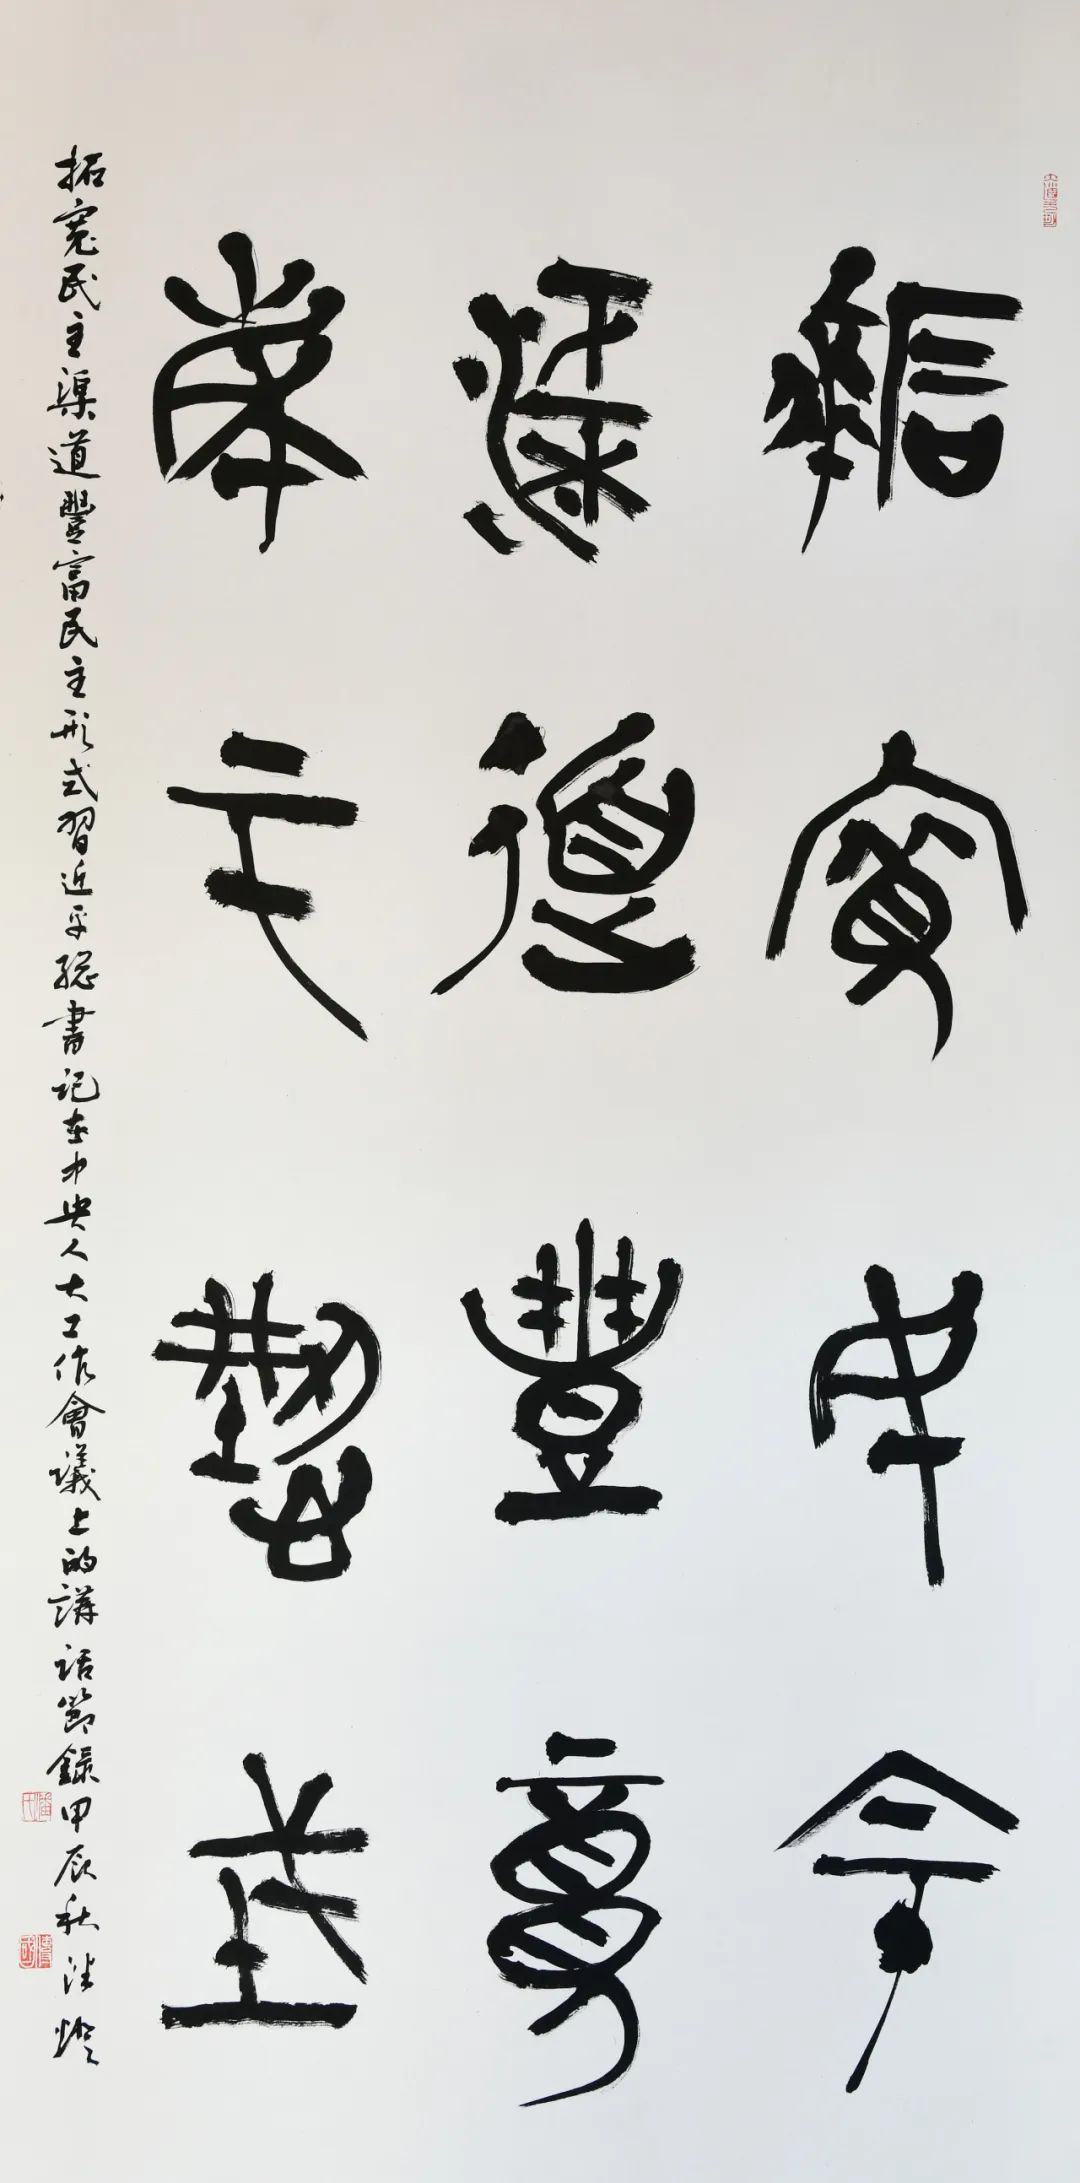 拓寬民主
渠道豐富
民主形式
拓寬民主渠道豐富民主形式習近平總書記在中央人大工作會議上的講話節錄甲辰秋